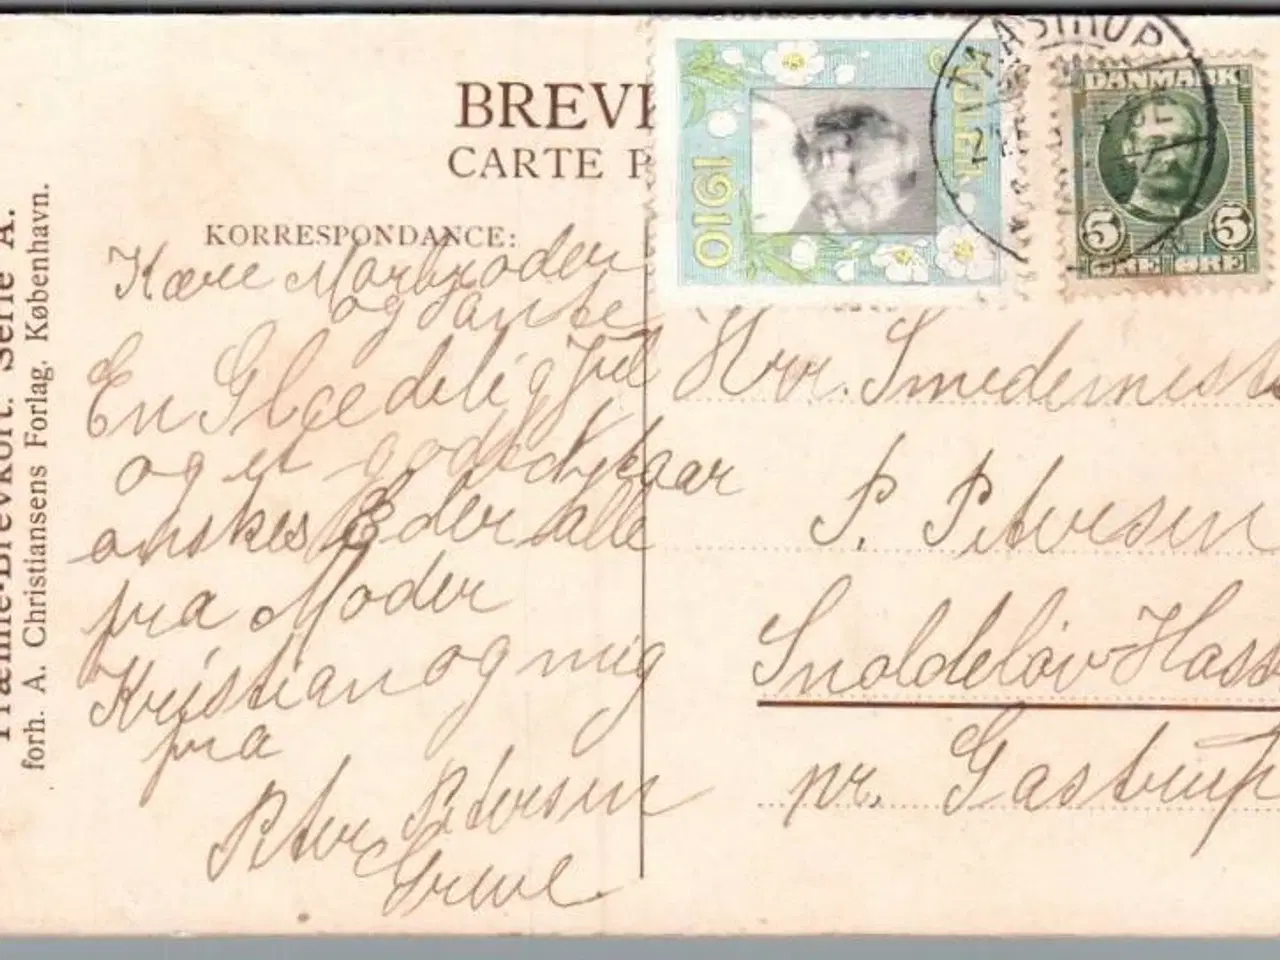 Præmie-Brevkort. Serie A.
forh. A. Christiansens Forlag, København.
BREVK
CARTE P
KORRESPONDANCE:
Kære Morbroder
og Tante
En Glædelig Jul
og et godt Nytaar
ønskes Eder alle
fra Moder
Kristian og mig
fra
Peter Petersen
Greve
JULEN
1910
TAASTRUP
DANMARK
5 5
ØRE ØRE
Hrr. Smedemest
P. Petersen
Snoldeløv Hast
nr. Gastrup